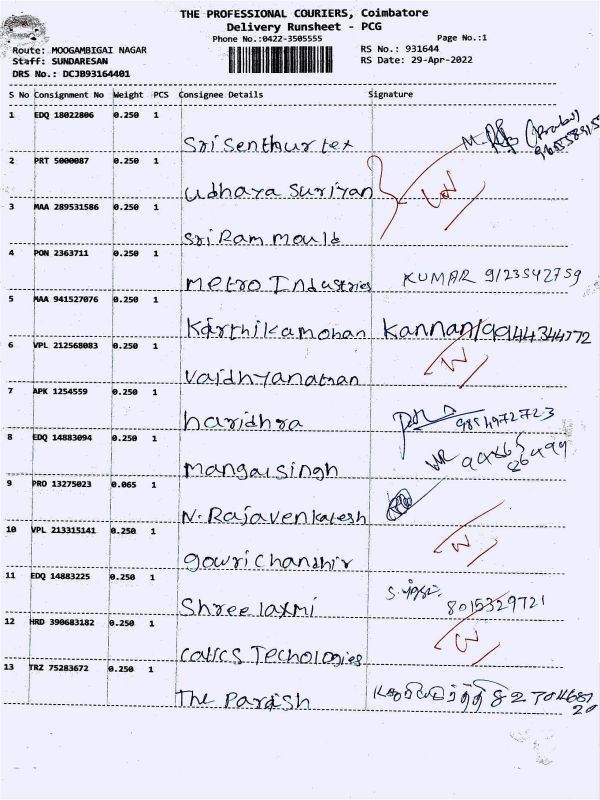 THE PROFESSIONAL COURIERS, Coimbatore
Delivery Runsheet - PCG
Phone No.:0422-3505555
Page No.:1
Route: MOOGAMBIGAI NAGAR
RS No.: 931644
Staff: SUNDARESAN
RS Date: 29-Apr-2022
DRS No.: DCJB93164401
S No Consignment No Weight PCS Consignee Details Signature
1 EDQ 18022806 0.250 1
Sri Senthur tex
2 PRT 5000087 0.250 1
Udhaya Suriyan
3 MAA 289531586 0.250 1
Sri Ram mould
4 PON 2363711 0.250 1
Metro Industries KUMAR 9123542759
5 MAA 941527076 0.250 1
Karthikamohan Kannan/9944344772
6 VPL 212568083 0.250 1
Vaidhyanathan
7 APK 1254559 0.250 1
haridhra
8 EDQ 14883094 0.250 1
Mangalsingh
9 PRO 13275023 0.065 1
N. Rajavenkatesh
10 VPL 213315141 0.250 1
gowri Chandhir
11 EDQ 14883225 0.250 1
Shree laxmi 8015329721
12 HRD 390683182 0.250 1
Techologies
13 TRZ 75283672 0.250 1
The Paradish